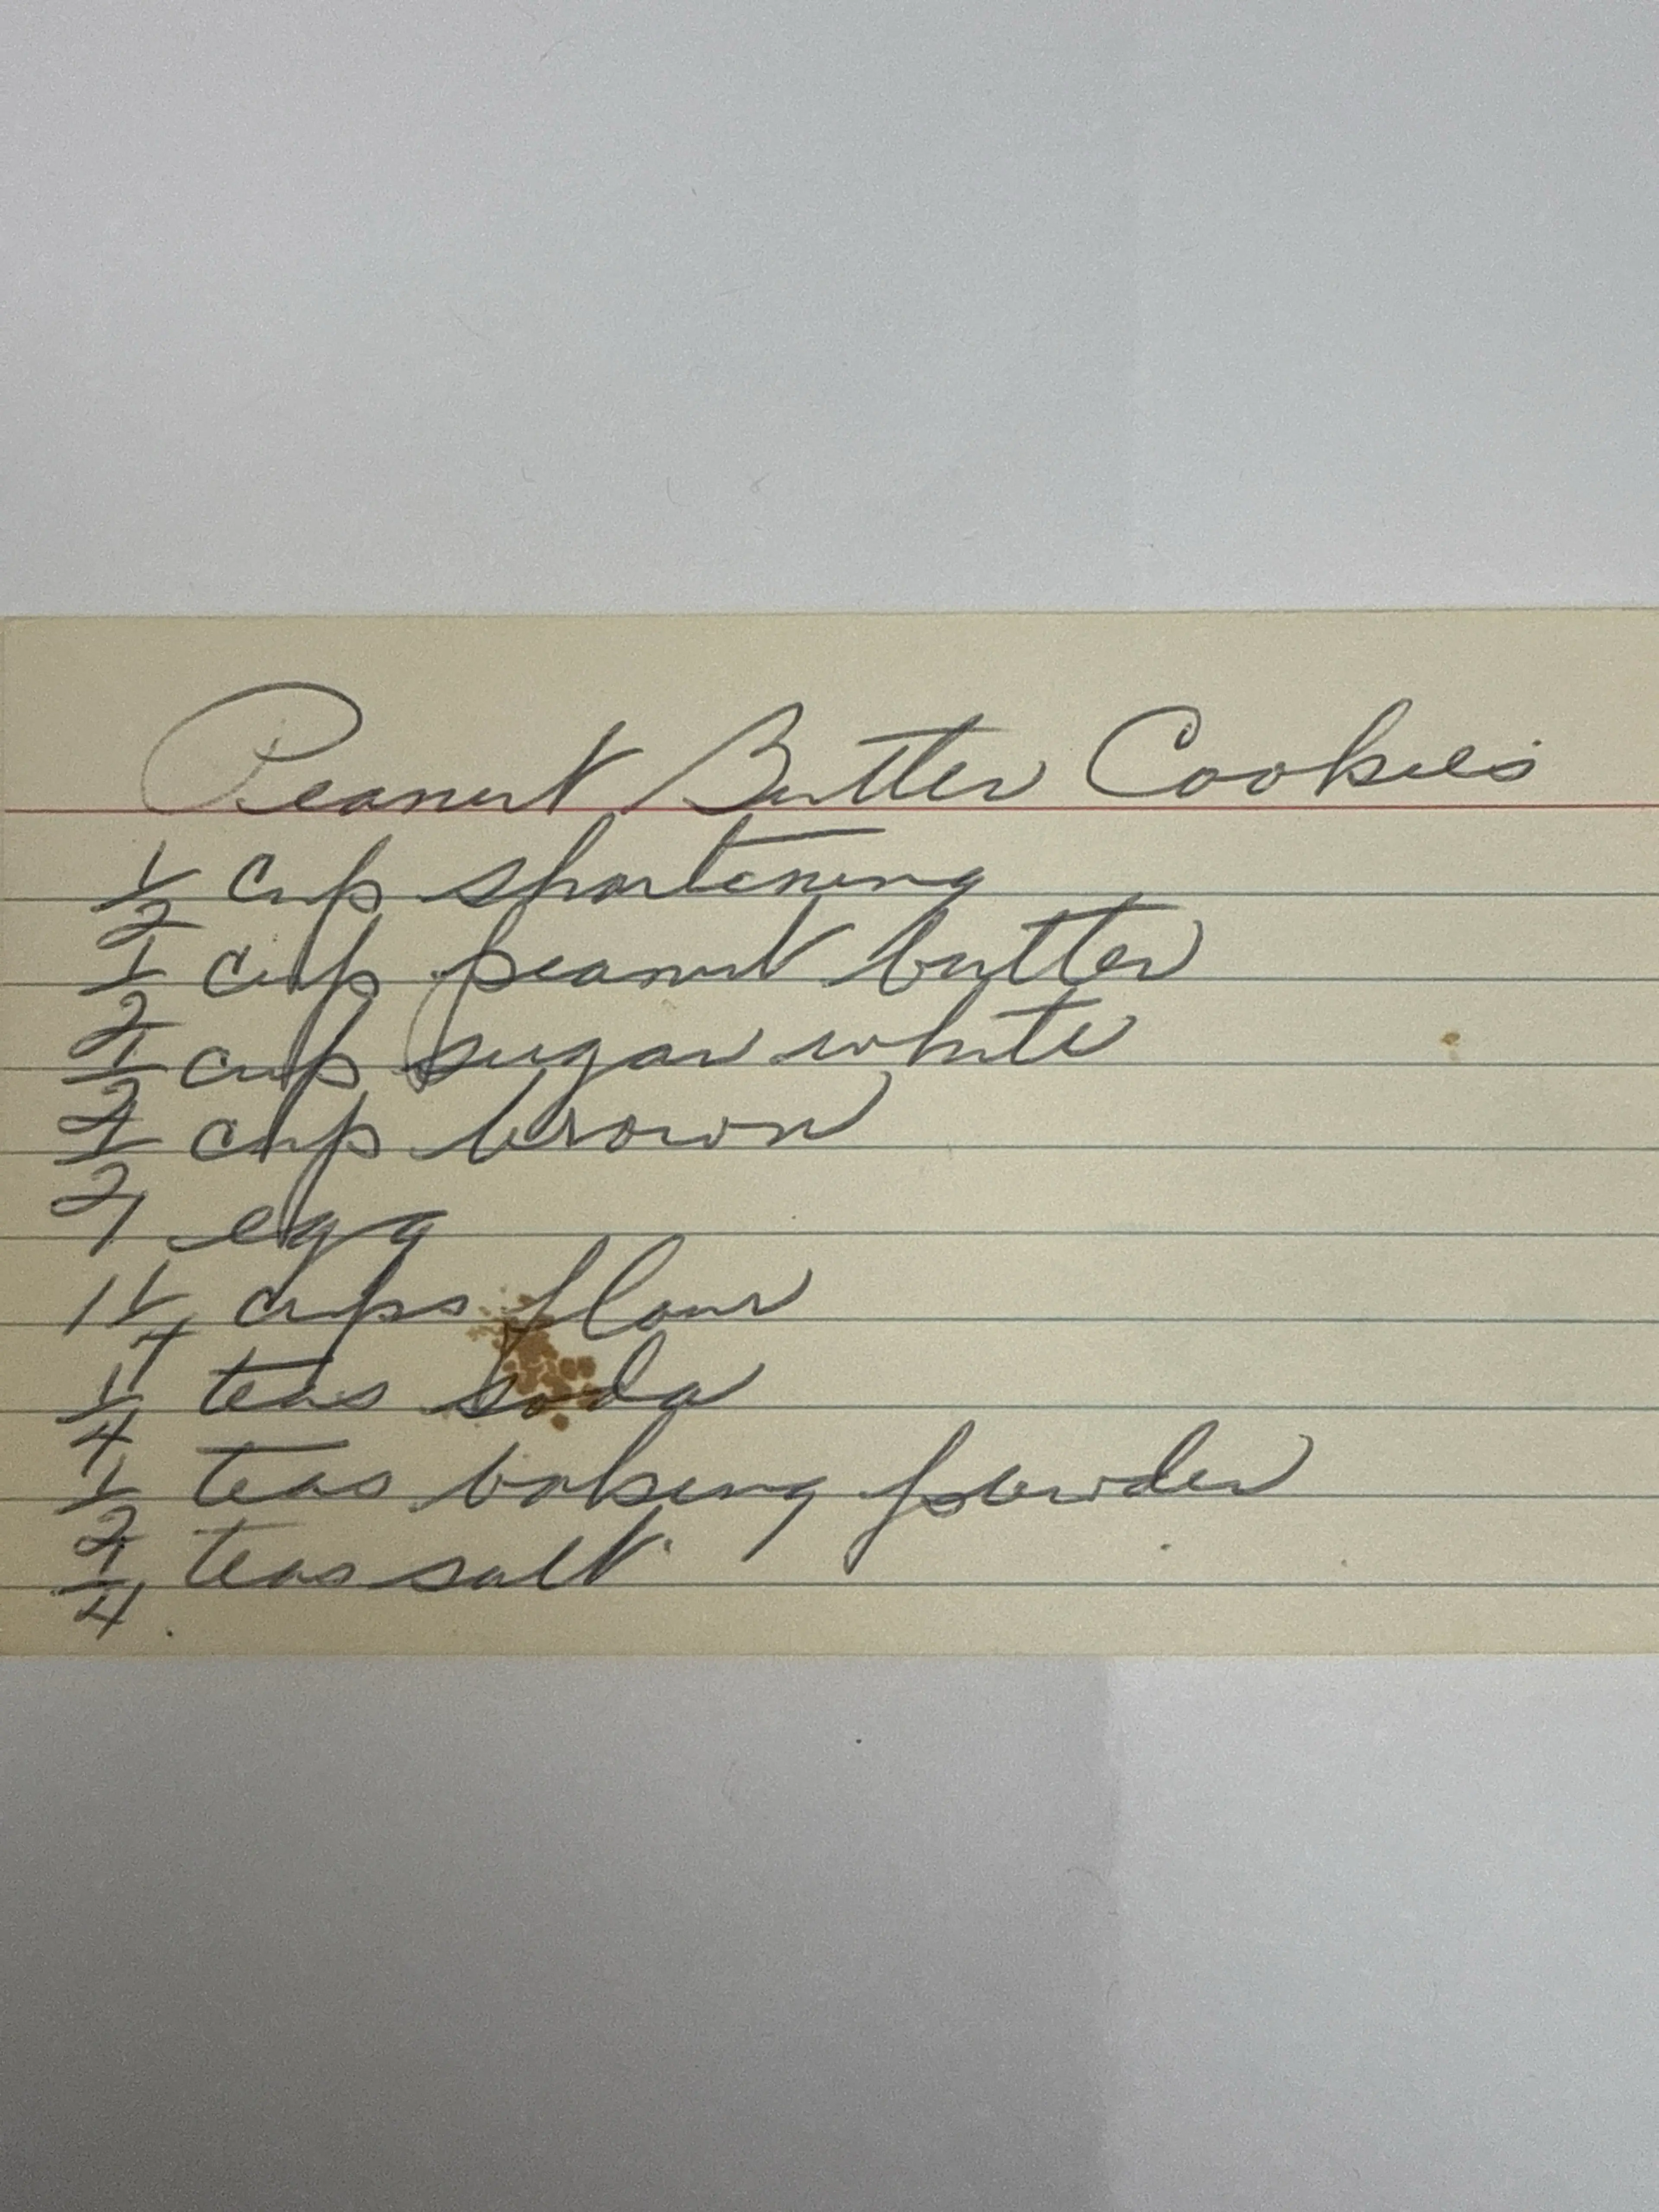 Peanut Butter Cookies
1/2 cup shortening
1/2 cup peanut butter
1/2 cup sugar white
1/2 cup brown
1 egg
1 1/4 cups flour
1/4 teas soda
1/2 teas baking powder
1/4 teas salt